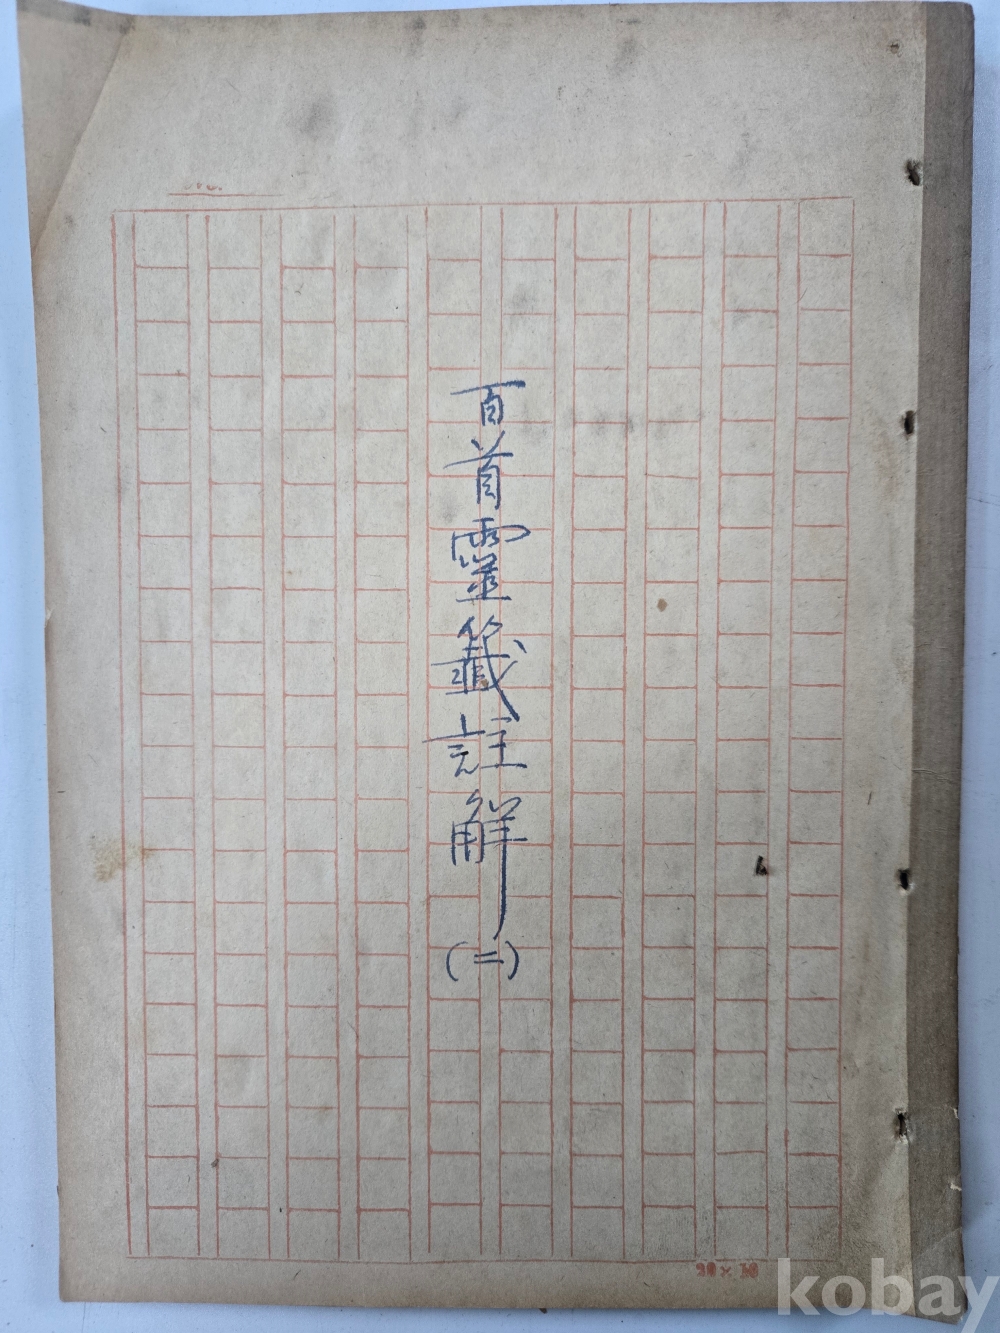 百首靈籤註解(二)
20×10
kobay